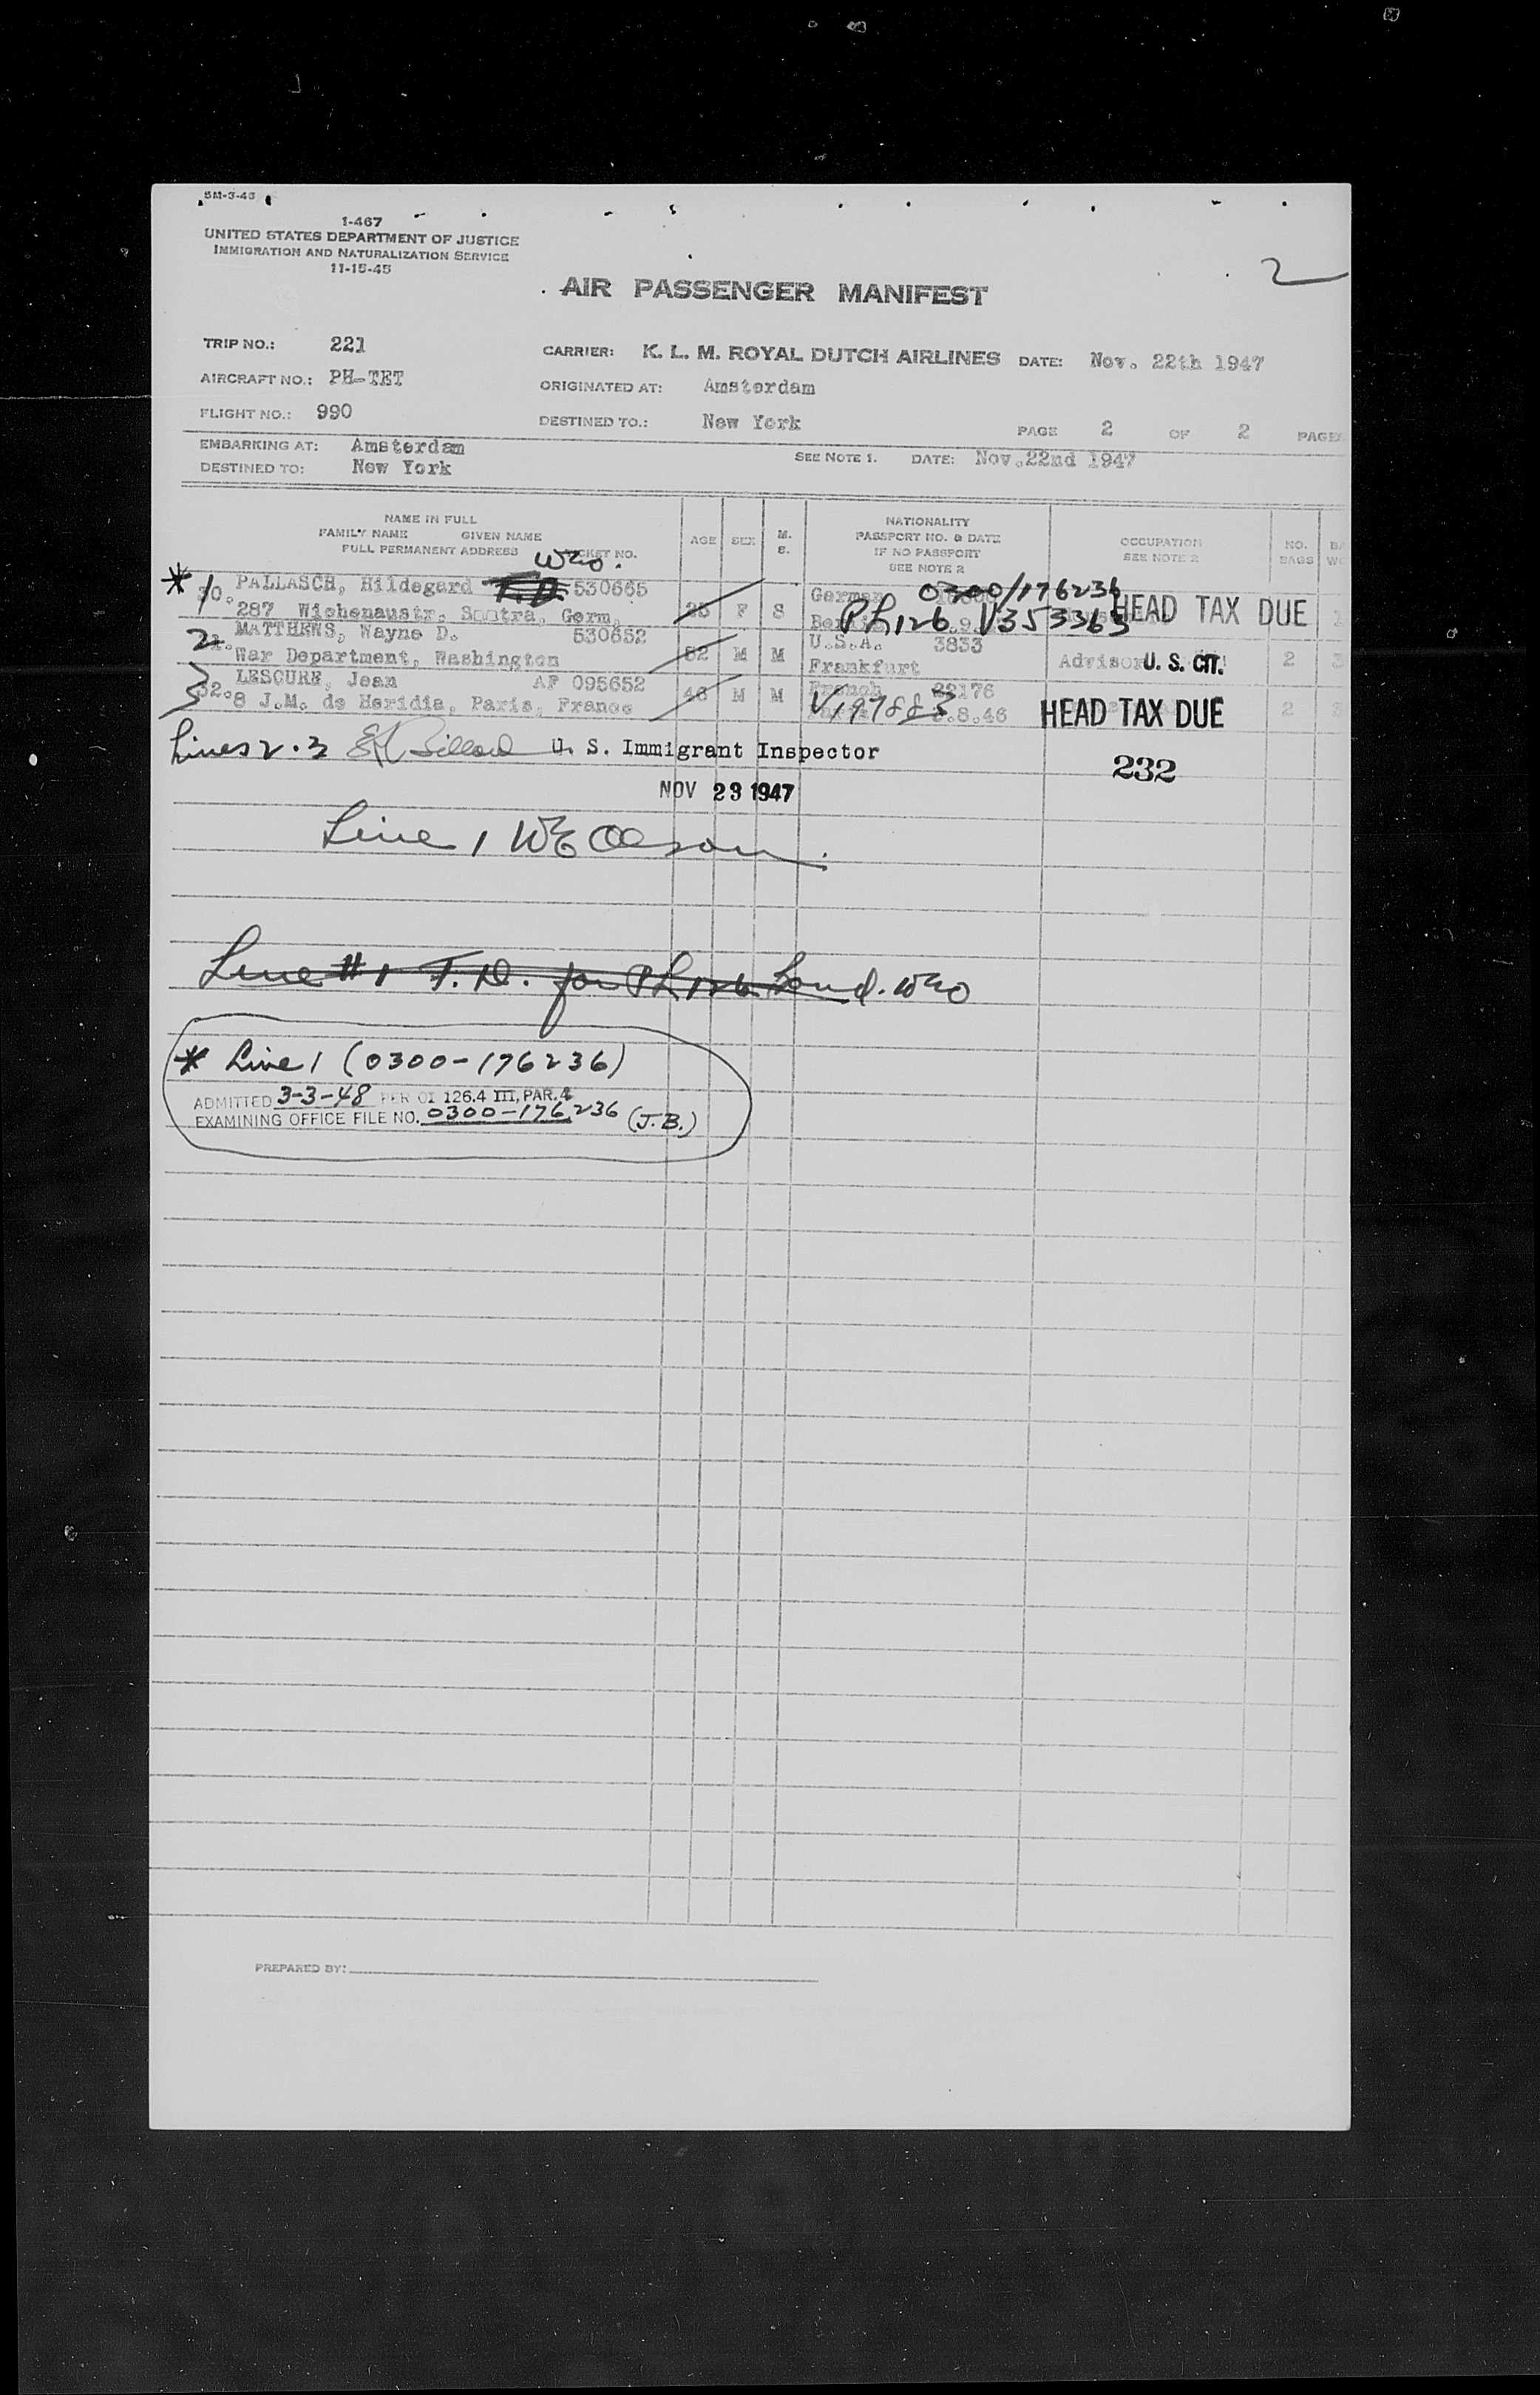 5M-3-46
I-467
UNITED STATES DEPARTMENT OF JUSTICE
IMMIGRATION AND NATURALIZATION SERVICE
11-15-45
2
AIR PASSENGER MANIFEST
TRIP NO.: 221 CARRIER: K. L. M. ROYAL DUTCH AIRLINES DATE: Nov. 22th 1947
AIRCRAFT NO.: PH-TET ORIGINATED AT: Amsterdam
FLIGHT NO.: 990 DESTINED TO.: New York PAGE 2 OF 2 PAGES
EMBARKING AT: Amsterdam SEE NOTE 1. DATE: Nov.22nd 1947
DESTINED TO: New York
NAME IN FULL
FAMILY NAME GIVEN NAME
FULL PERMANENT ADDRESS TICKET NO.
AGE SEX M. S.
NATIONALITY
PASSPORT NO. & DATE
IF NO PASSPORT
SEE NOTE 2
OCCUPATION
SEE NOTE 2
NO. BAGS
weo.
* 1 30. PALLASCH, Hildegard T.D. 530665 25 F S German 0300/176236 HEAD TAX DUE
287 Wichenaustr. Sontra, Germ. PL126 V353363
2 MATTHEWS, Wayne D. 530652 52 M M U.S.A. 3833
War Department, Washington Frankfurt Advisor U. S. CIT. 2
3 32. LESCURE, Jean AF 095652 46 M M French 22176
8 J.M. de Heridia, Paris, France V197883 .8.46 HEAD TAX DUE 2
Lines 2.3 U. S. Immigrant Inspector 232
NOV 23 1947
Line 1 WE Olson
Line #1 T.D. for PL126 Land. weo
* Line 1 (0300-176236)
ADMITTED 3-3-48 PER OI 126.4 III, PAR. 4
EXAMINING OFFICE FILE NO. 0300-176236 (J.B.)
PREPARED BY: